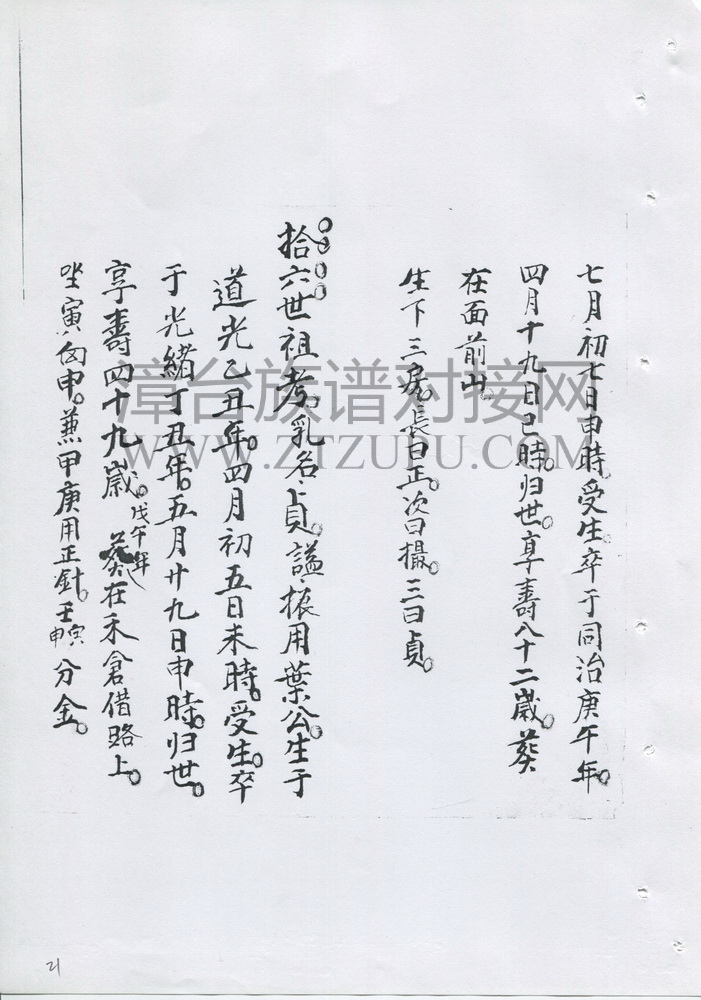 七月初七日申時。受生。卒于同治庚午年。
四月十九日巳時。归世。享壽八十二歲。葬
在面前山。
生下三房。長曰正。次曰撮。三曰貞。
拾六世祖考。乳名、貞。謚、振用葉公。生于
道光乙丑年。四月初五日未時。受生。卒
于光緒丁丑年。五月廿九日申時。归世。
享壽四十九歲。戊午年葬在禾倉借路上。
坐寅向申。兼甲庚用正針。壬寅壬申分金。
漳台族谱对接网
WWW.ZTZUPU.COM
21